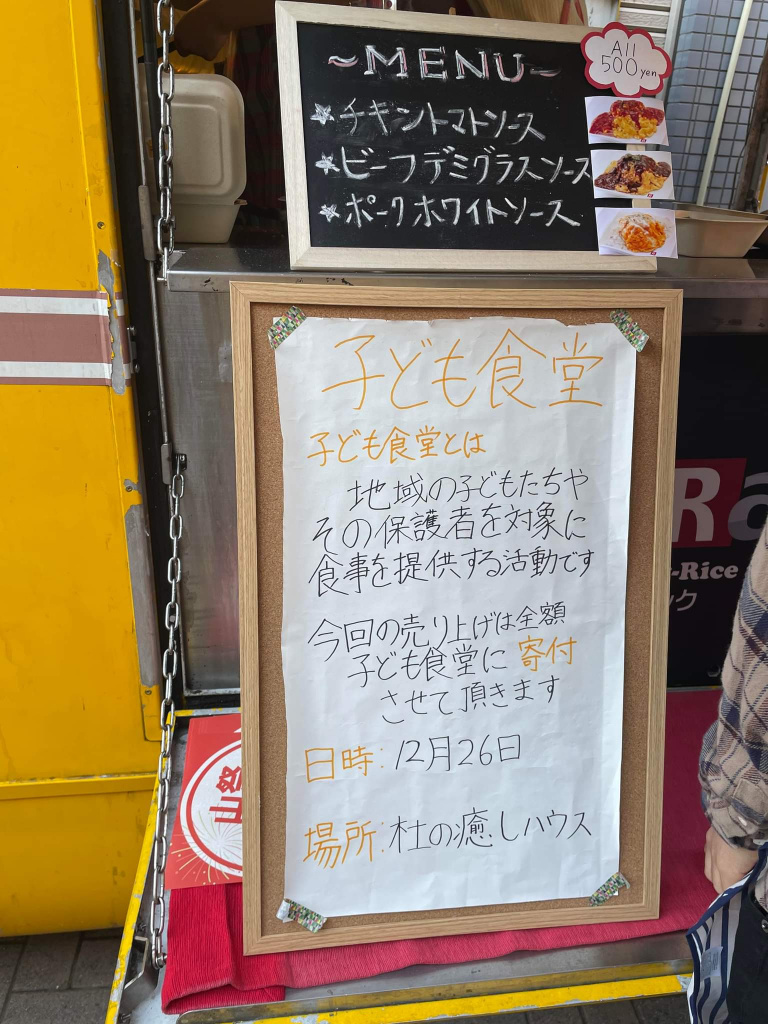 ~MENU~
All
500yen
☆チキントマトソース
☆ビーフデミグラスソース
☆ポークホワイトソース
子ども食堂
子ども食堂とは
地域の子どもたちや
その保護者を対象に
食事を提供する活動です
今回の売り上げは全額
子ども食堂に寄付
させて頂きます
日時:12月26日
場所:杜の癒しハウス
Ra
-Rice
ック